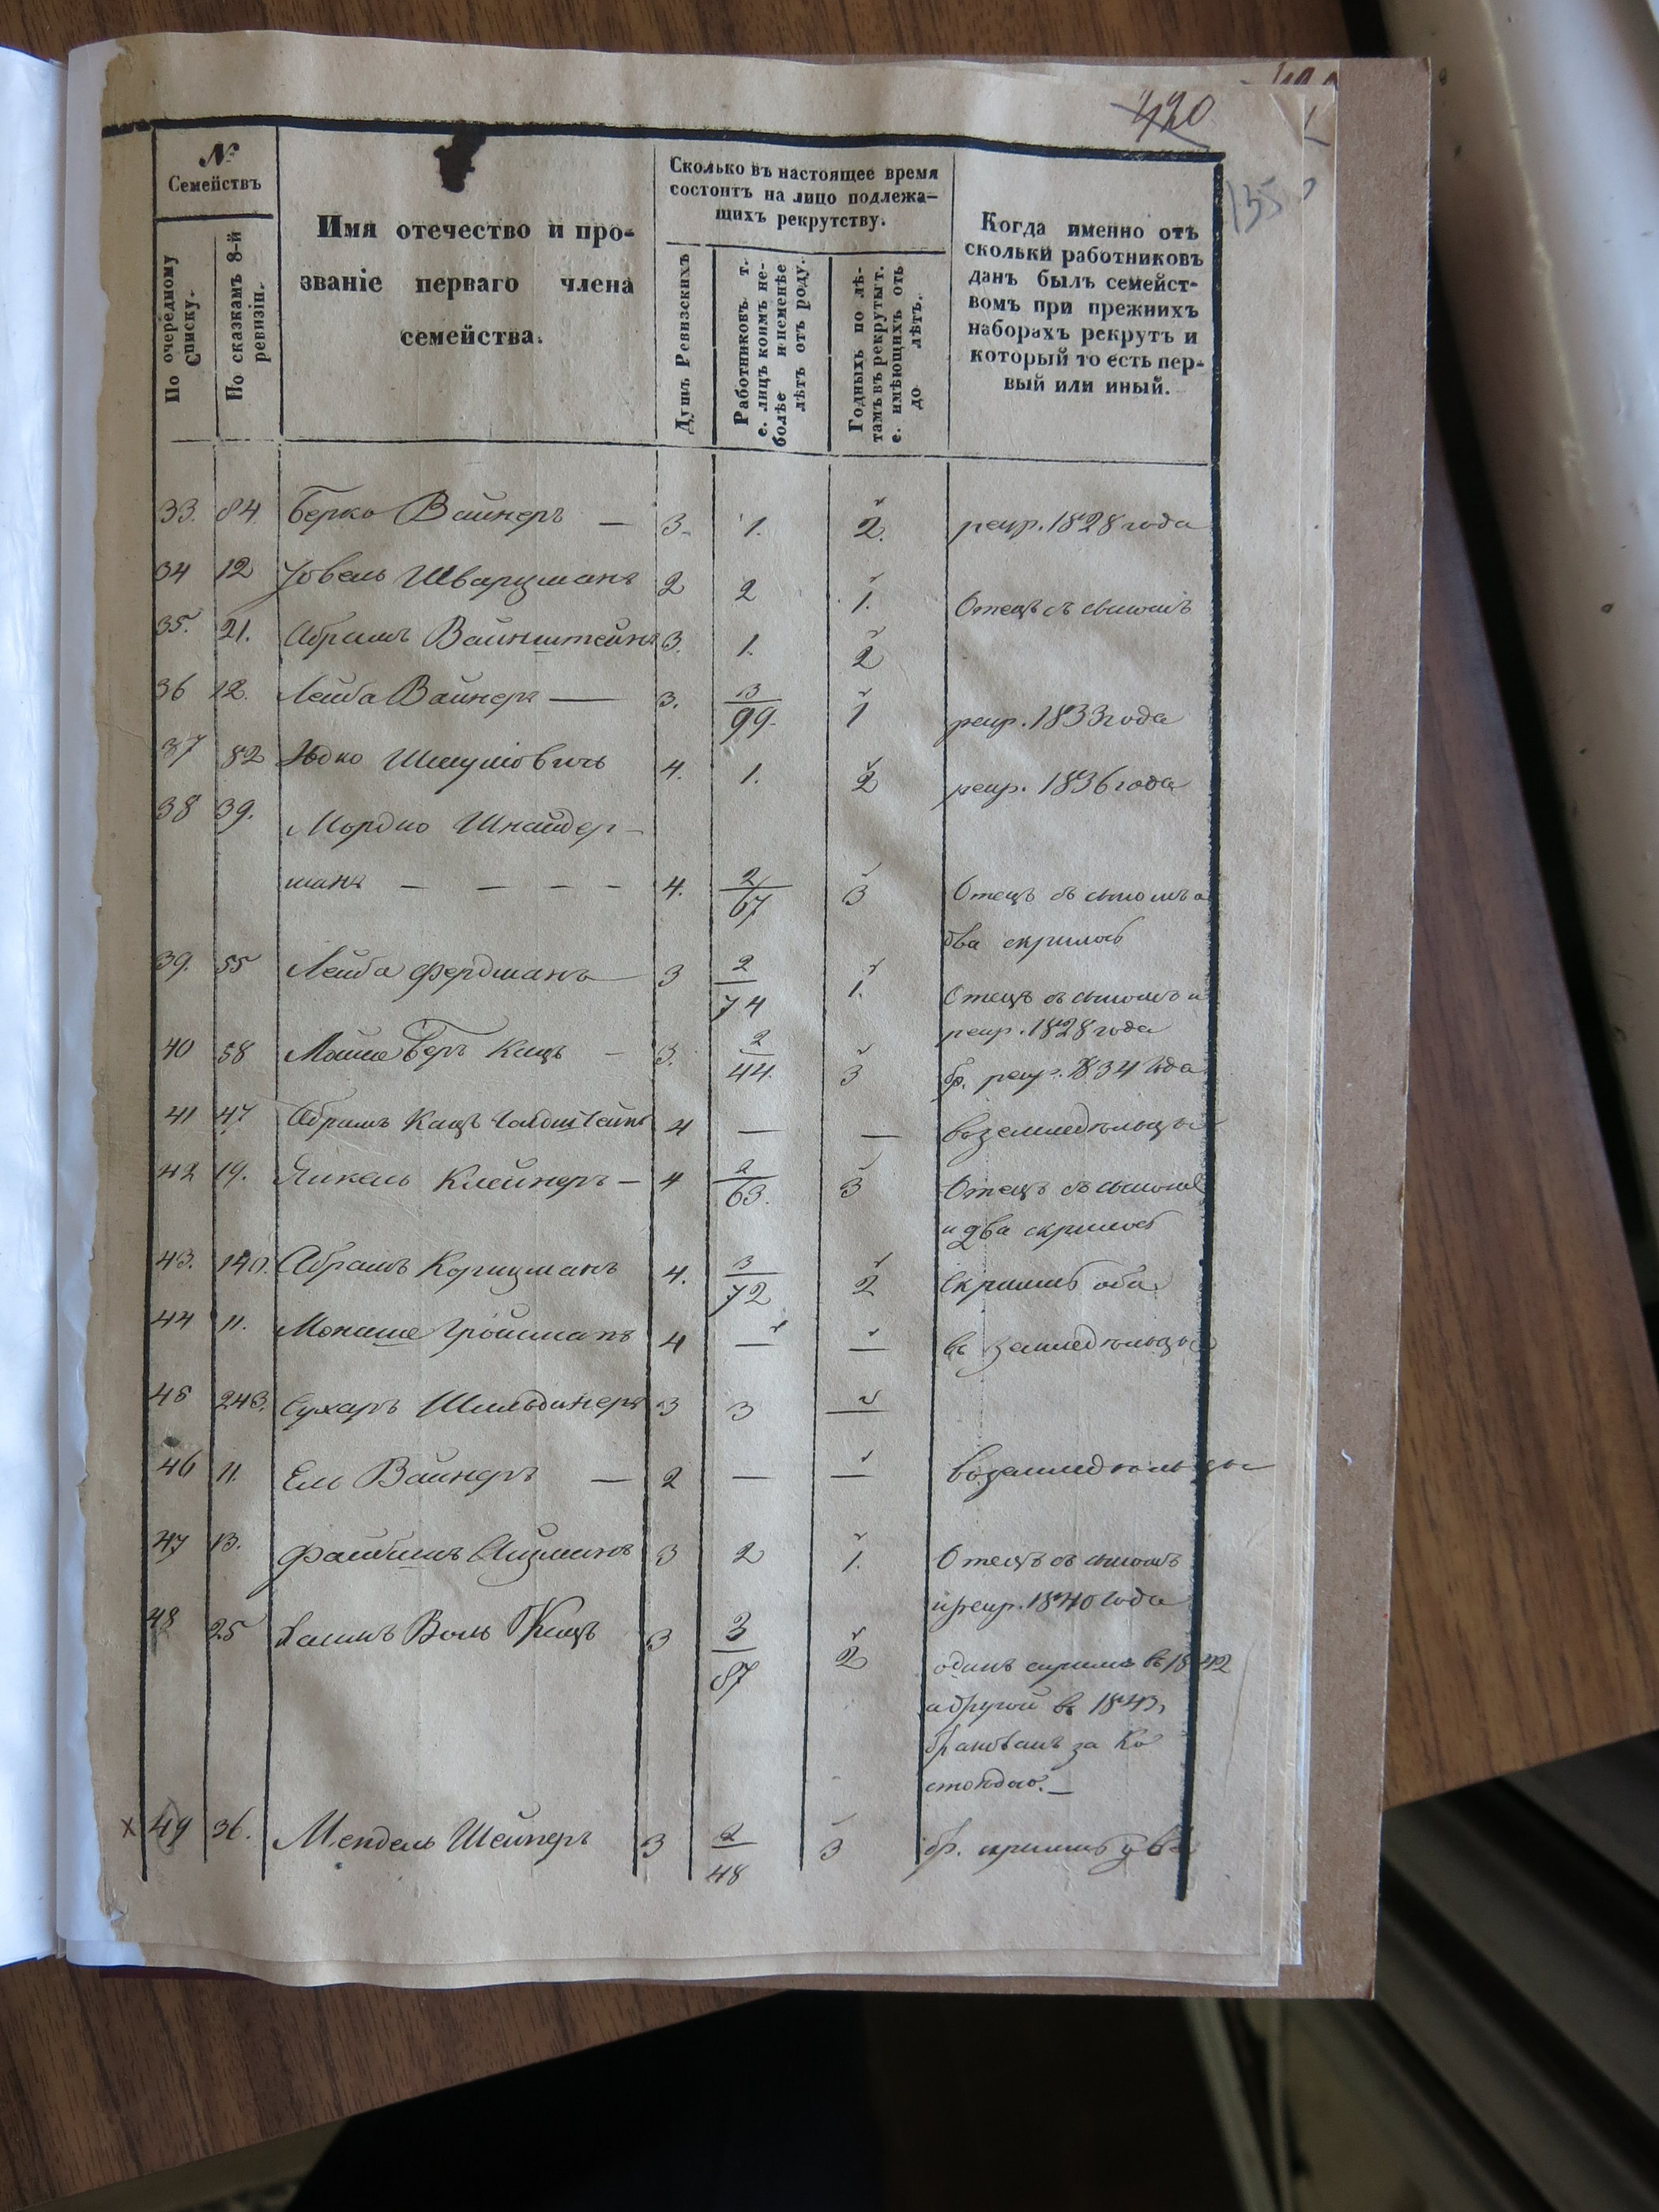 420
135
№
Семействъ
По очередному списку.
По сказкамъ 8-й ревизіи.
Имя отечество и про-
званіе перваго члена
семейства.
Сколько въ настоящее время
состоитъ на лицо подлежа-
щихъ рекрутству.
Душъ Ревизскихъ
Работниковъ т.
е. лицъ коимъ не-
болѣе и неменѣе
лѣтъ отъ роду.
Годныхъ по лѣ-
тамъ въ рекруты т.
е. имѣющихъ отъ
до лѣтъ.
Когда именно отъ
сколькй работниковъ
данъ былъ семейст-
вомъ при прежнихъ
наборахъ рекрутъ и
который то есть пер-
вый или иный.
33. 84. Берко Вайнеръ — 3. 1. 2. рекр. 1828 года
34 12 Іовель Шварцманъ 2 2 1. Отецъ съ сыномъ
35. 21. Абрамъ Вайнштейнъ 3. 1. 2
36 12. Лейба Вайнеръ — 3. 3/99. 1 рекр. 1833 года
37 82 Юдко Шмуліовичъ 4. 1. 2 рекр. 1836 года
38 39. Мордко Шнайдер-
манъ — — — — 4. 2/67 3 Отецъ съ сыномъ а
два скрылось
39. 55 Лейба Фердманъ 3 2/74 1. Отецъ съ сыномъ и
рекр. 1828 года
40 58 Мошко Беръ Кацъ — 3. 2/44. 3 бр. рекр. 1834 года
41 47 Абрамъ Кацъ Голдштейнъ 4 — — воземледельцы
42 19. Янкель Клейнеръ — 4 2/63. 3 Отецъ съ сыномъ
и два скрылось
43. 140. Абрамъ Корицманъ 4. 3/72 2 Скрылись оба
44 11. Монаше Гройсманъ 4 — — въ земледельцы
45 243. Сухаръ 3 3 —
46 11. Ель Вайнеръ — 2 — — воземледельцы
47 13. Файбишъ Айзманъ 3 2 1. Отецъ съ сыномъ
и рекр. 1840 года
48 25 Хаимъ Воль Кацъ 3 3/87 2 одинъ скрылся въ 1842
а другой въ 1843
бракованъ за
x 49 36. Мендель Шейнеръ 3 2/48 3 бр. скрылись два